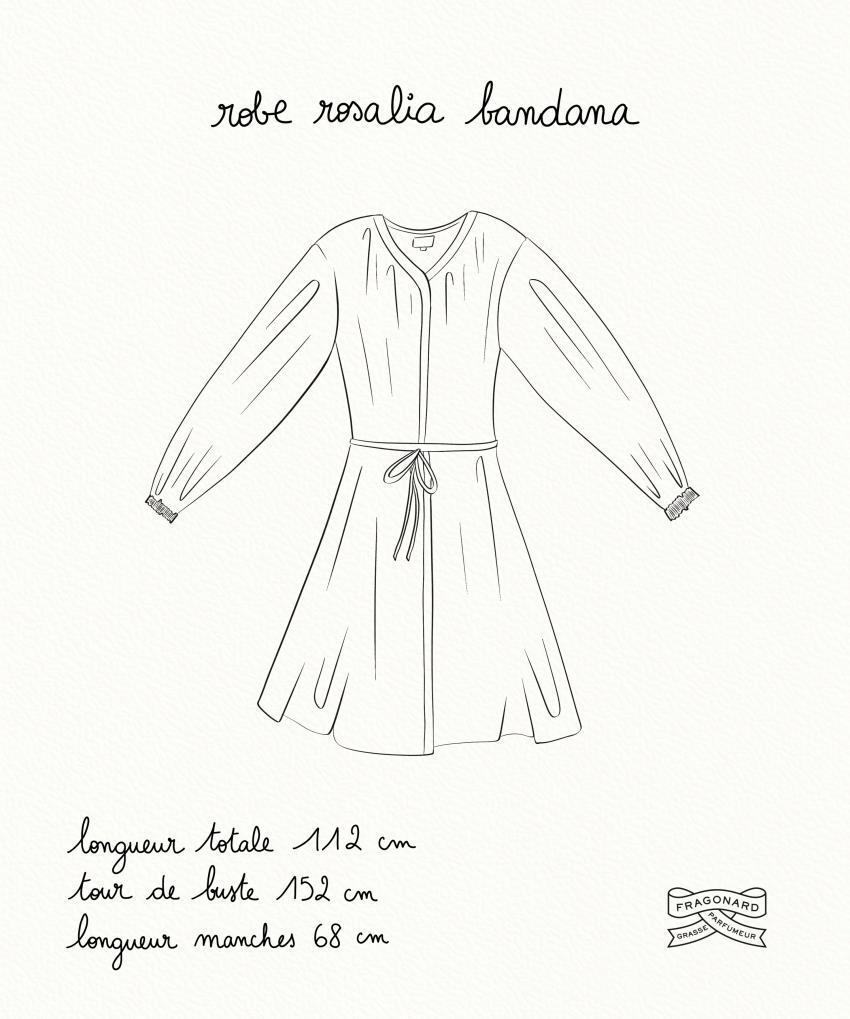 robe rosalia bandana
longueur totale 112 cm
tour de buste 152 cm
longueur manches 68 cm
FRAGONARD
GRASSE PARFUMEUR